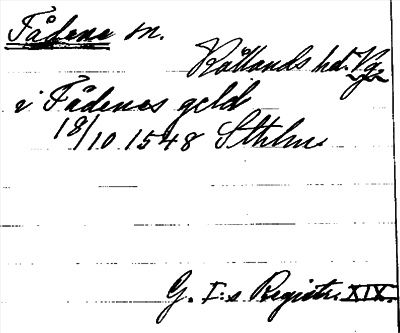 Fådene sn.
Rållands hd. Vg.
i Fådenes geld
18/10 1548 Sthlm
G. I:s Registr. XIX.